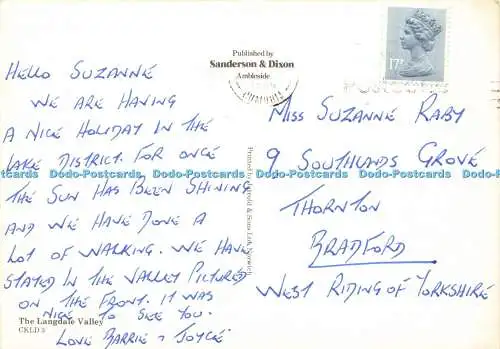 Published by
Sanderson & Dixon
Ambleside
17P
HELLO SUZANNE
WE ARE HAVING
A NICE HOLIDAY IN THE
LAKE DISTRICT. FOR ONCE
THE SUN HAS BEEN SHINING
AND WE HAVE DONE A
LOT OF WALKING. WE HAVE
STAYED IN THE VALLEY PICTURED
ON THE FRONT. IT WAS
NICE TO SEE YOU.
LOVE BARRIE & JOYCE
The Langdale Valley
CKLD 3
MISS SUZANNE RABY
9 SOUTHLANDS GROVE
THORNTON
BRADFORD
WEST RIDING OF YORKSHIRE
Dodo-Postcards Dodo-Postcards Dodo-Postcards Dodo-Postcards Dodo-Postcards